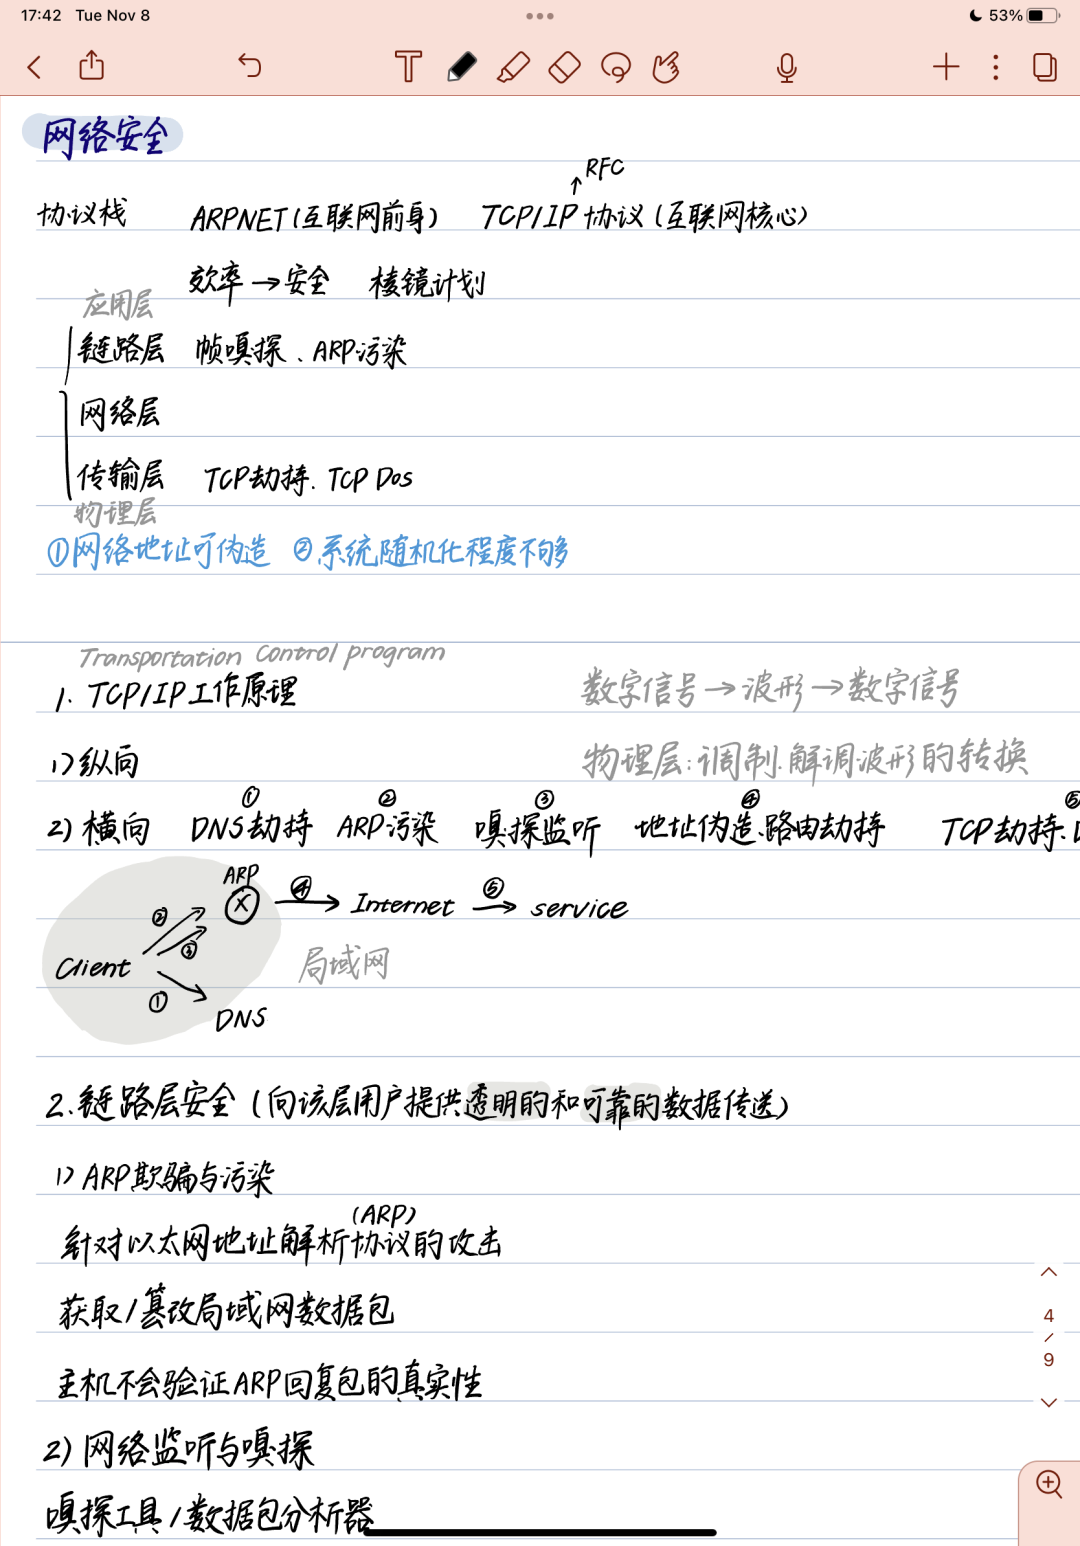 17:42 Tue Nov 8 53%
网络安全
RFC
协议栈 ARPNET(互联网前身) TCP/IP 协议(互联网核心)
效率→安全 棱镜计划
应用层
链路层 帧嗅探、ARP污染
网络层
传输层 TCP劫持. TCP Dos
物理层
①网络地址可伪造 ②系统随机化程度不够
Transportation Control program
1. TCP/IP工作原理 数字信号→波形→数字信号
1)纵向 物理层:调制.解调波形的转换
① ② ③ ④ ⑤
2)横向 DNS劫持 ARP污染 嗅探监听 地址伪造.路由劫持 TCP劫持.
ARP
② ③ ④→ Internet ⑤→ service
Client 局域网
①
DNS
2.链路层安全(向该层用户提供透明的和可靠的数据传送)
1) ARP欺骗与污染
(ARP)
针对以太网地址解析协议的攻击
获取/篡改局域网数据包
主机不会验证ARP回复包的真实性
2)网络监听与嗅探
嗅探工具/数据包分析器
4
/
9